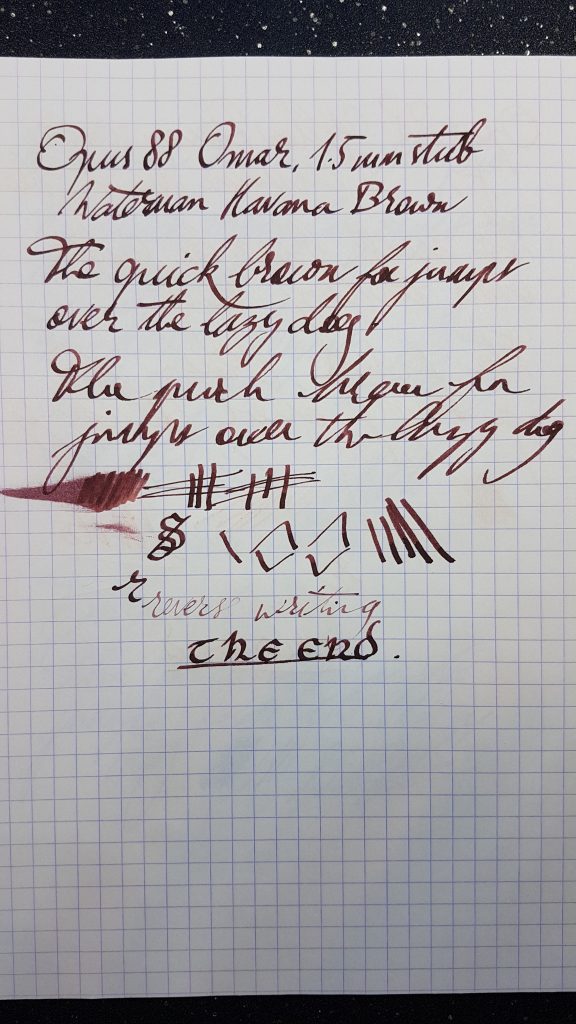 Opus 88 Omar, 1.5 mm stub
Waterman Havana Brown
The quick brown fox jumps
over the lazy dog
The quick brown fox
jumps over the lazy dog
S
r reverse writing
THE END.